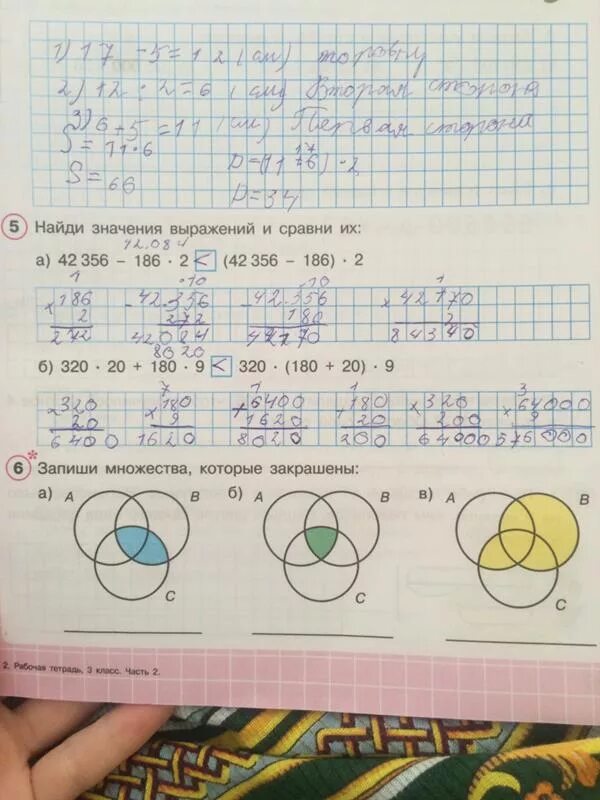 1) 17 - 5 = 12 (см)
2) 12 : 2 = 6 (см) Вторая сторона
3) 6 + 5 = 11 (см) Первая сторона
S = 11 · 6
S = 66
P = (11 + 6) · 2
P = 34
5 Найди значения выражений и сравни их:
42.084
а) 42 356 – 186 · 2 < (42 356 – 186) · 2
× 186 2 272
- 42.356 272 42084
- 42.356 186 42170
× 42170 2 84340
8020
б) 320 · 20 + 180 · 9 < 320 · (180 + 20) · 9
× 320 20 6400
× 180 9 1620
+ 6400 1620 8020
+ 180 20 200
× 320 200 64000
× 64000 9 576000
6* Запиши множества, которые закрашены:
а) A B C
б) A B C
в) A B C
2. Рабочая тетрадь, 3 класс. Часть 2.